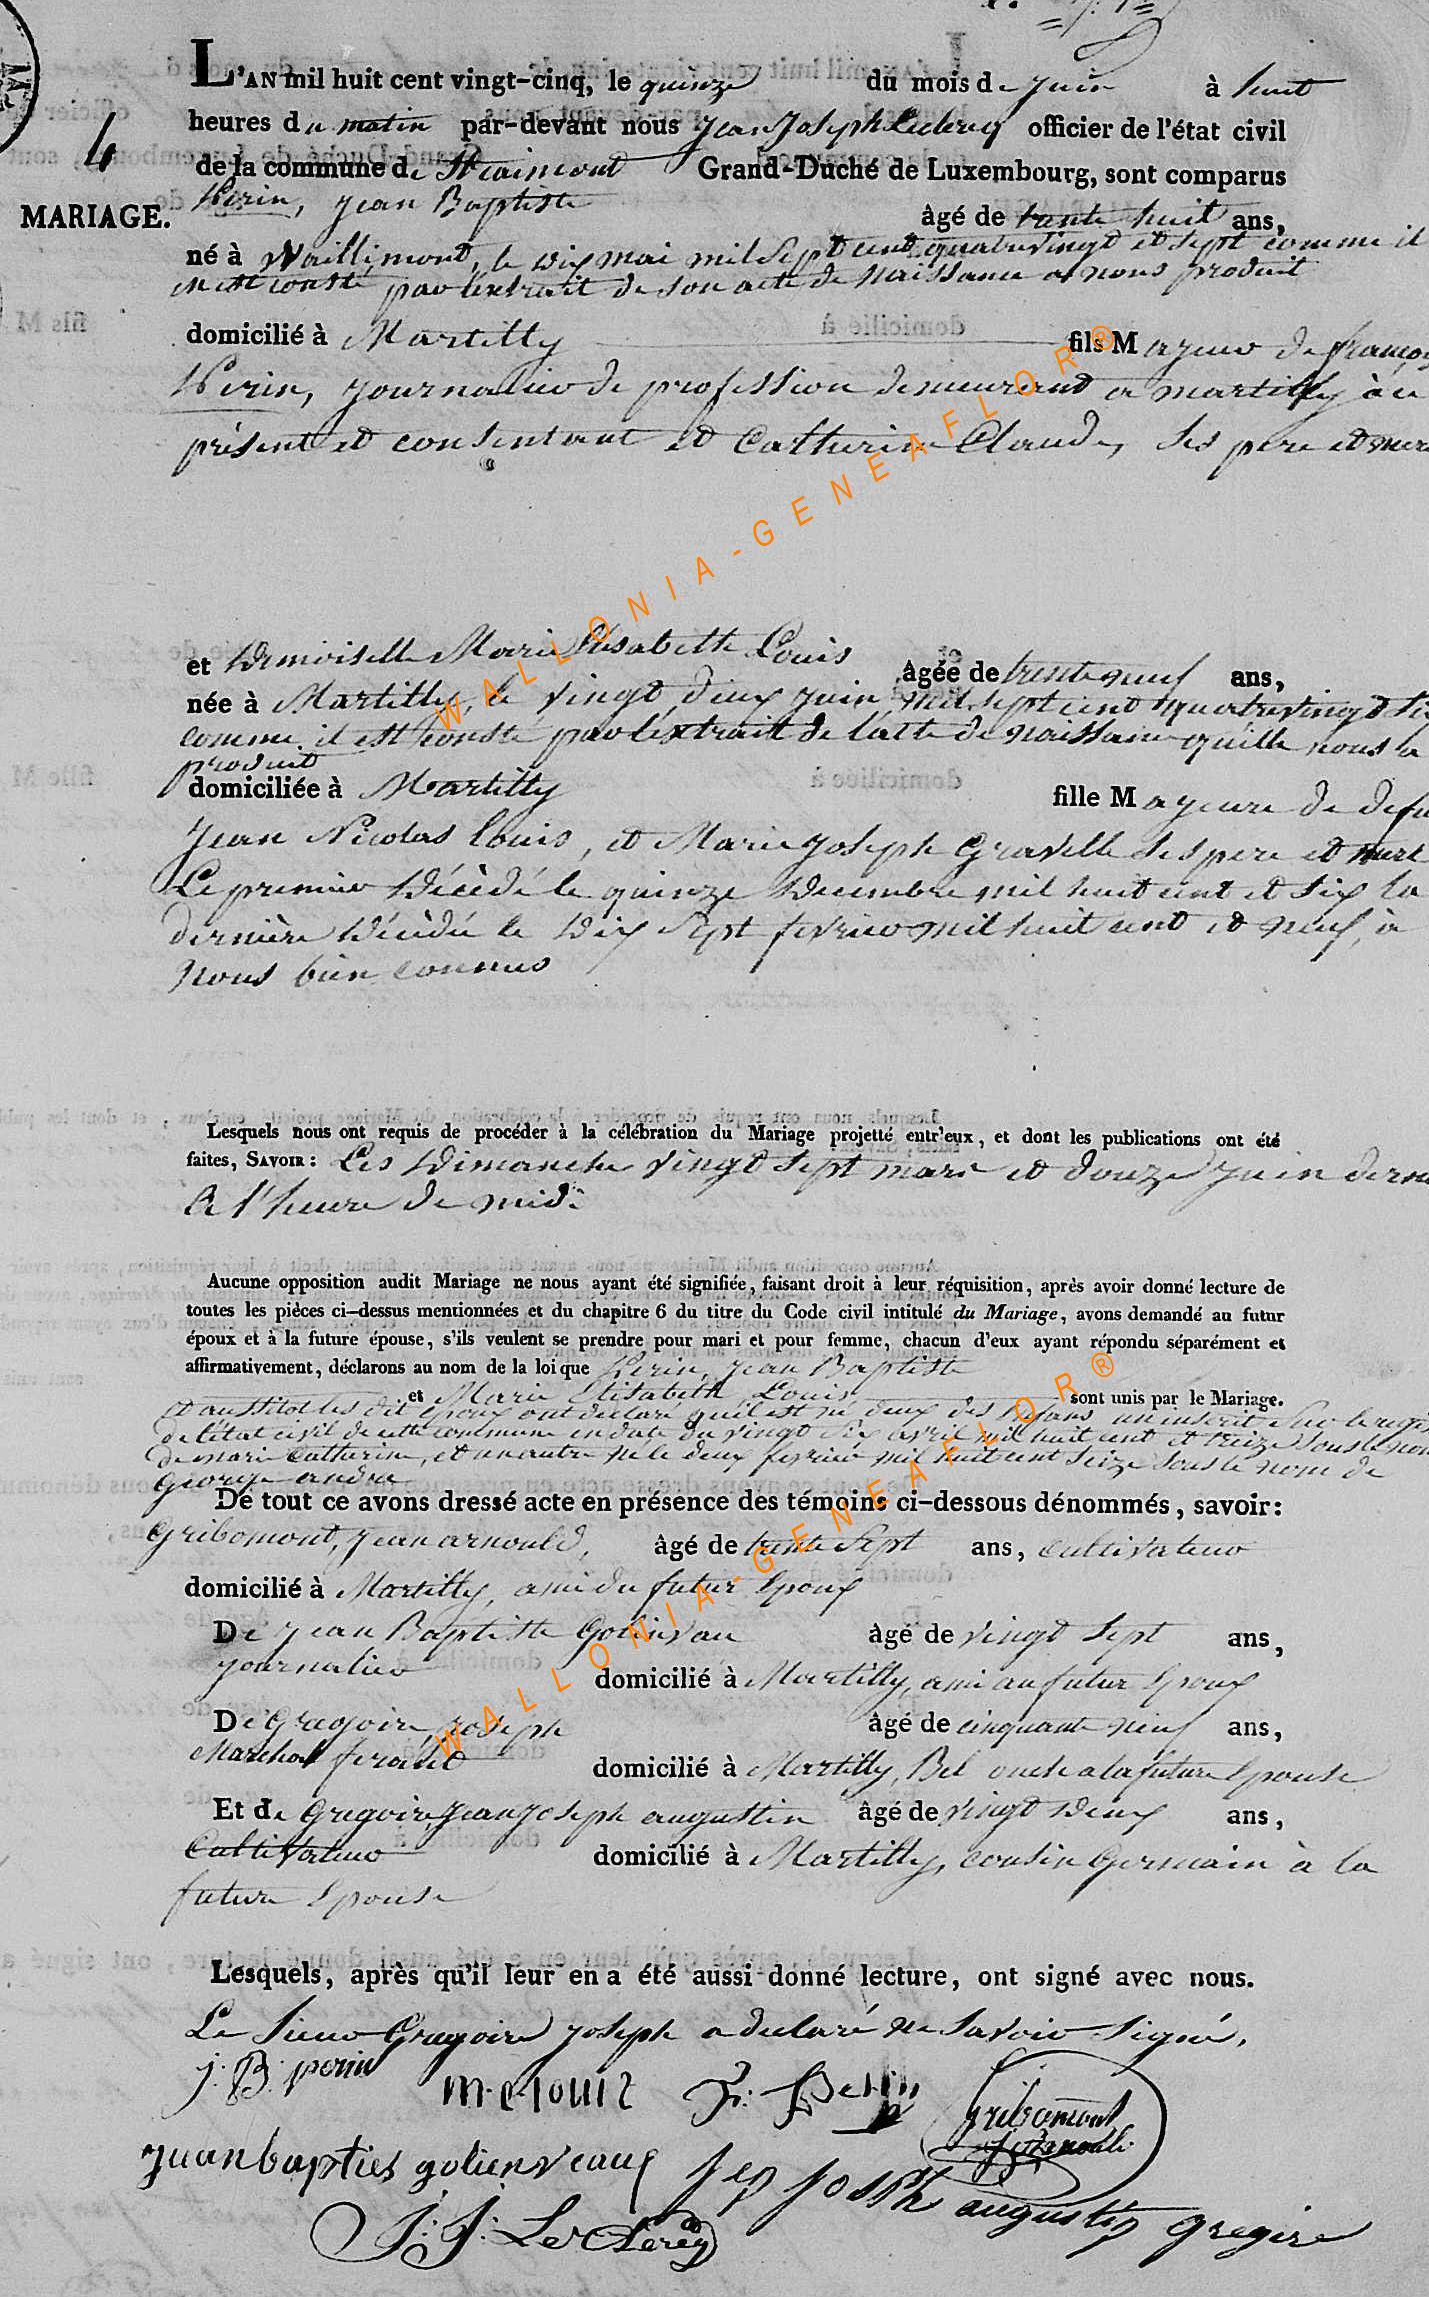 L'AN mil huit cent vingt-cinq, le quinze du mois de juin à huit
heures du matin par-devant nous Jean Joseph Leclercq officier de l'état civil
4
de la commune de Straimont Grand-Duché de Luxembourg, sont comparus
MARIAGE.
Perin, Jean Baptiste âgé de trente huit ans,
né à Waillimont, le dix mai mil sept cent quatrevingt et sept comme il
n est consté par l'extrait de son acte de naissance a nous produit
domicilié à Martilly fils Majeur de françois
Perin, journalier de profession demeurand a martilly à ce
présent et consentant et Catherine Claude, ses pere et mere
et Demoiselle Marie Elisabette Louis Agée de trente neuf ans,
née à Martilly, le vingt deux juin mil sept cent quatrevingt six
comme il est consté par l'extrait de l'acte de naissance quelle nous a
produit
domiciliée à Martilly fille Majeure de defu
Jean Nicolas Louis, et Marie Joseph Gravelle ses pere et mere
Le premier Décédé le quinze Decembre mil huit cent et six la
dernière Décédée le Dix sept fevrier mil huit cent et neuf, à
nous bien connus
Lesquels nous ont requis de procéder à la célébration du Mariage projetté entr'eux, et dont les publications ont été
faites, SAVOIR: Les Dimanche vingt sept mars et douze juin dernie
A l'heure de midi
Aucune opposition audit Mariage ne nous ayant été signifiée, faisant droit à leur réquisition, après avoir donné lecture de
toutes les pièces ci-dessus mentionnées et du chapitre 6 du titre du Code civil intitulé du Mariage, avons demandé au futur
époux et à la future épouse, s'ils veulent se prendre pour mari et pour femme, chacun d'eux ayant répondu séparément et
affirmativement, déclarons au nom de la loi que Perin, Jean Baptiste
et Marie Elisabeth Louis sont unis par le Mariage.
et aussitot les dit Epoux ont declaré qu'il est né deux des enfans, un inscrit sur le regis
de l'état civil de cette commune en date du vingt six avril mil huit cent et treize sous le nom
de marie Catherine, et un autre né le deux fevrier mil huit cent seize sous le nom de
George andré
De tout ce avons dressé acte en présence des témoins ci-dessous dénommés, savoir:
Gribomont, Jean arnould, âgé de trente sept ans, cultivateur
domicilié à Martilly, ami du futur Epoux
De Jean Baptiste Golinvau âgé de vingt sept ans,
journalier domicilié à Martilly, ami au futur Epoux
De Gregoire, Joseph âgé de cinquante neuf ans,
Marchal ferand domicilié à Martilly, Bel oncle a la future Epouse
Et de Gregoire, Jean Joseph augustin âgé de vingt deux ans,
Cultivateur domicilié à Martilly, cousin Germain à la
future Epouse
Lesquels, après qu'il leur en a été aussi donné lecture, ont signé avec nous.
Le Sieur Gregoire Joseph a declaré ne savoir signé.
J: B: perin m. e louis F: Perin Gribomont
J: arnould
Juan bapties golienveaux Jep Joseph augustin gregire
J: J: Le Clercq
WALLONIA-GENEAFLOR®
WALLONIA-GENEAFLOR®